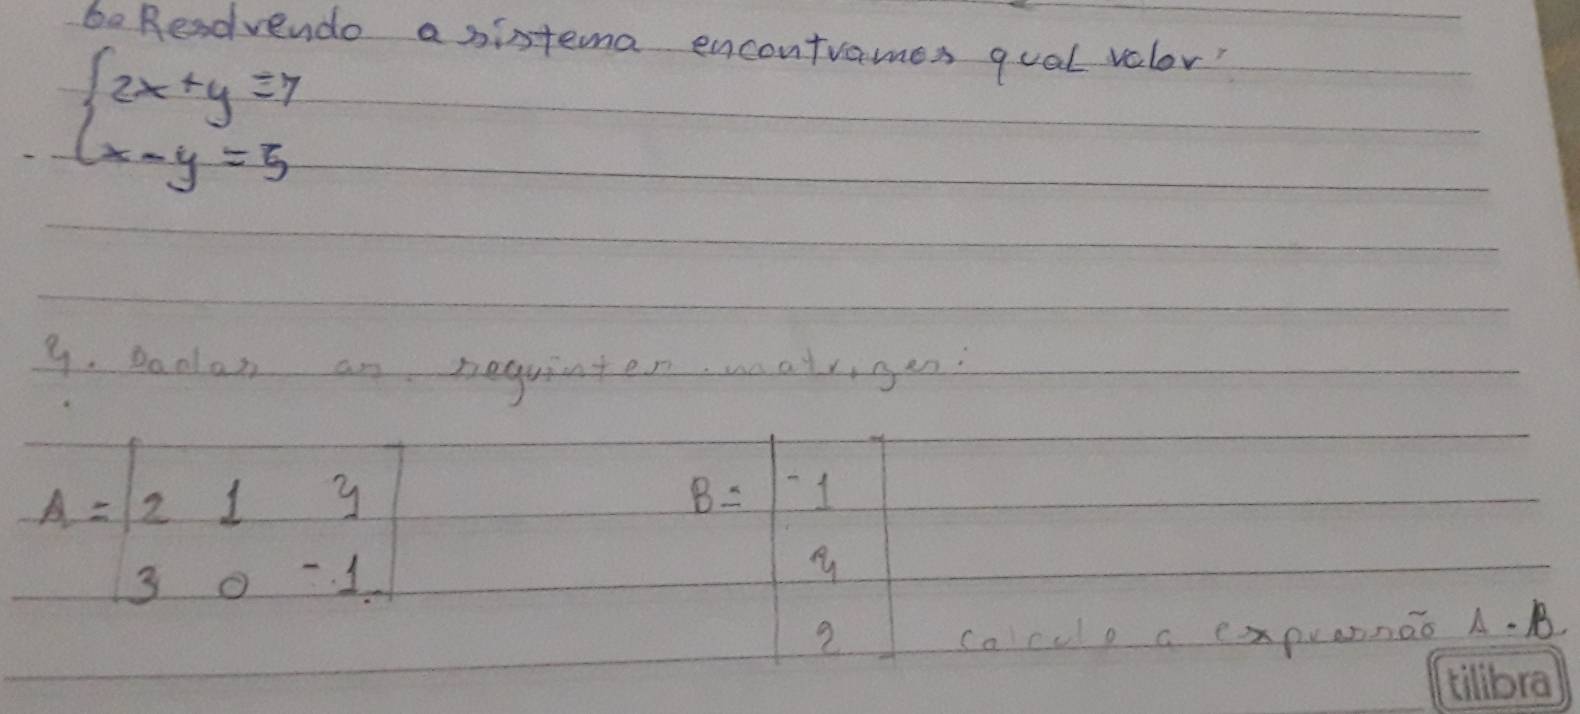 6. Resolvendo a sistema encontramos qual valor:
2x+y=7
x-y=5
4. Dadas as seguintes matrizes:
A = 2 1 4
3 0 -1
B = -1
4
2
calcule a expressão A . B
tilibra